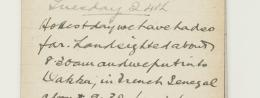 Tuesday 24th
Hottest day we have had so
far. Land sighted about
8.30am and we put into
Dakka, in French Senegal